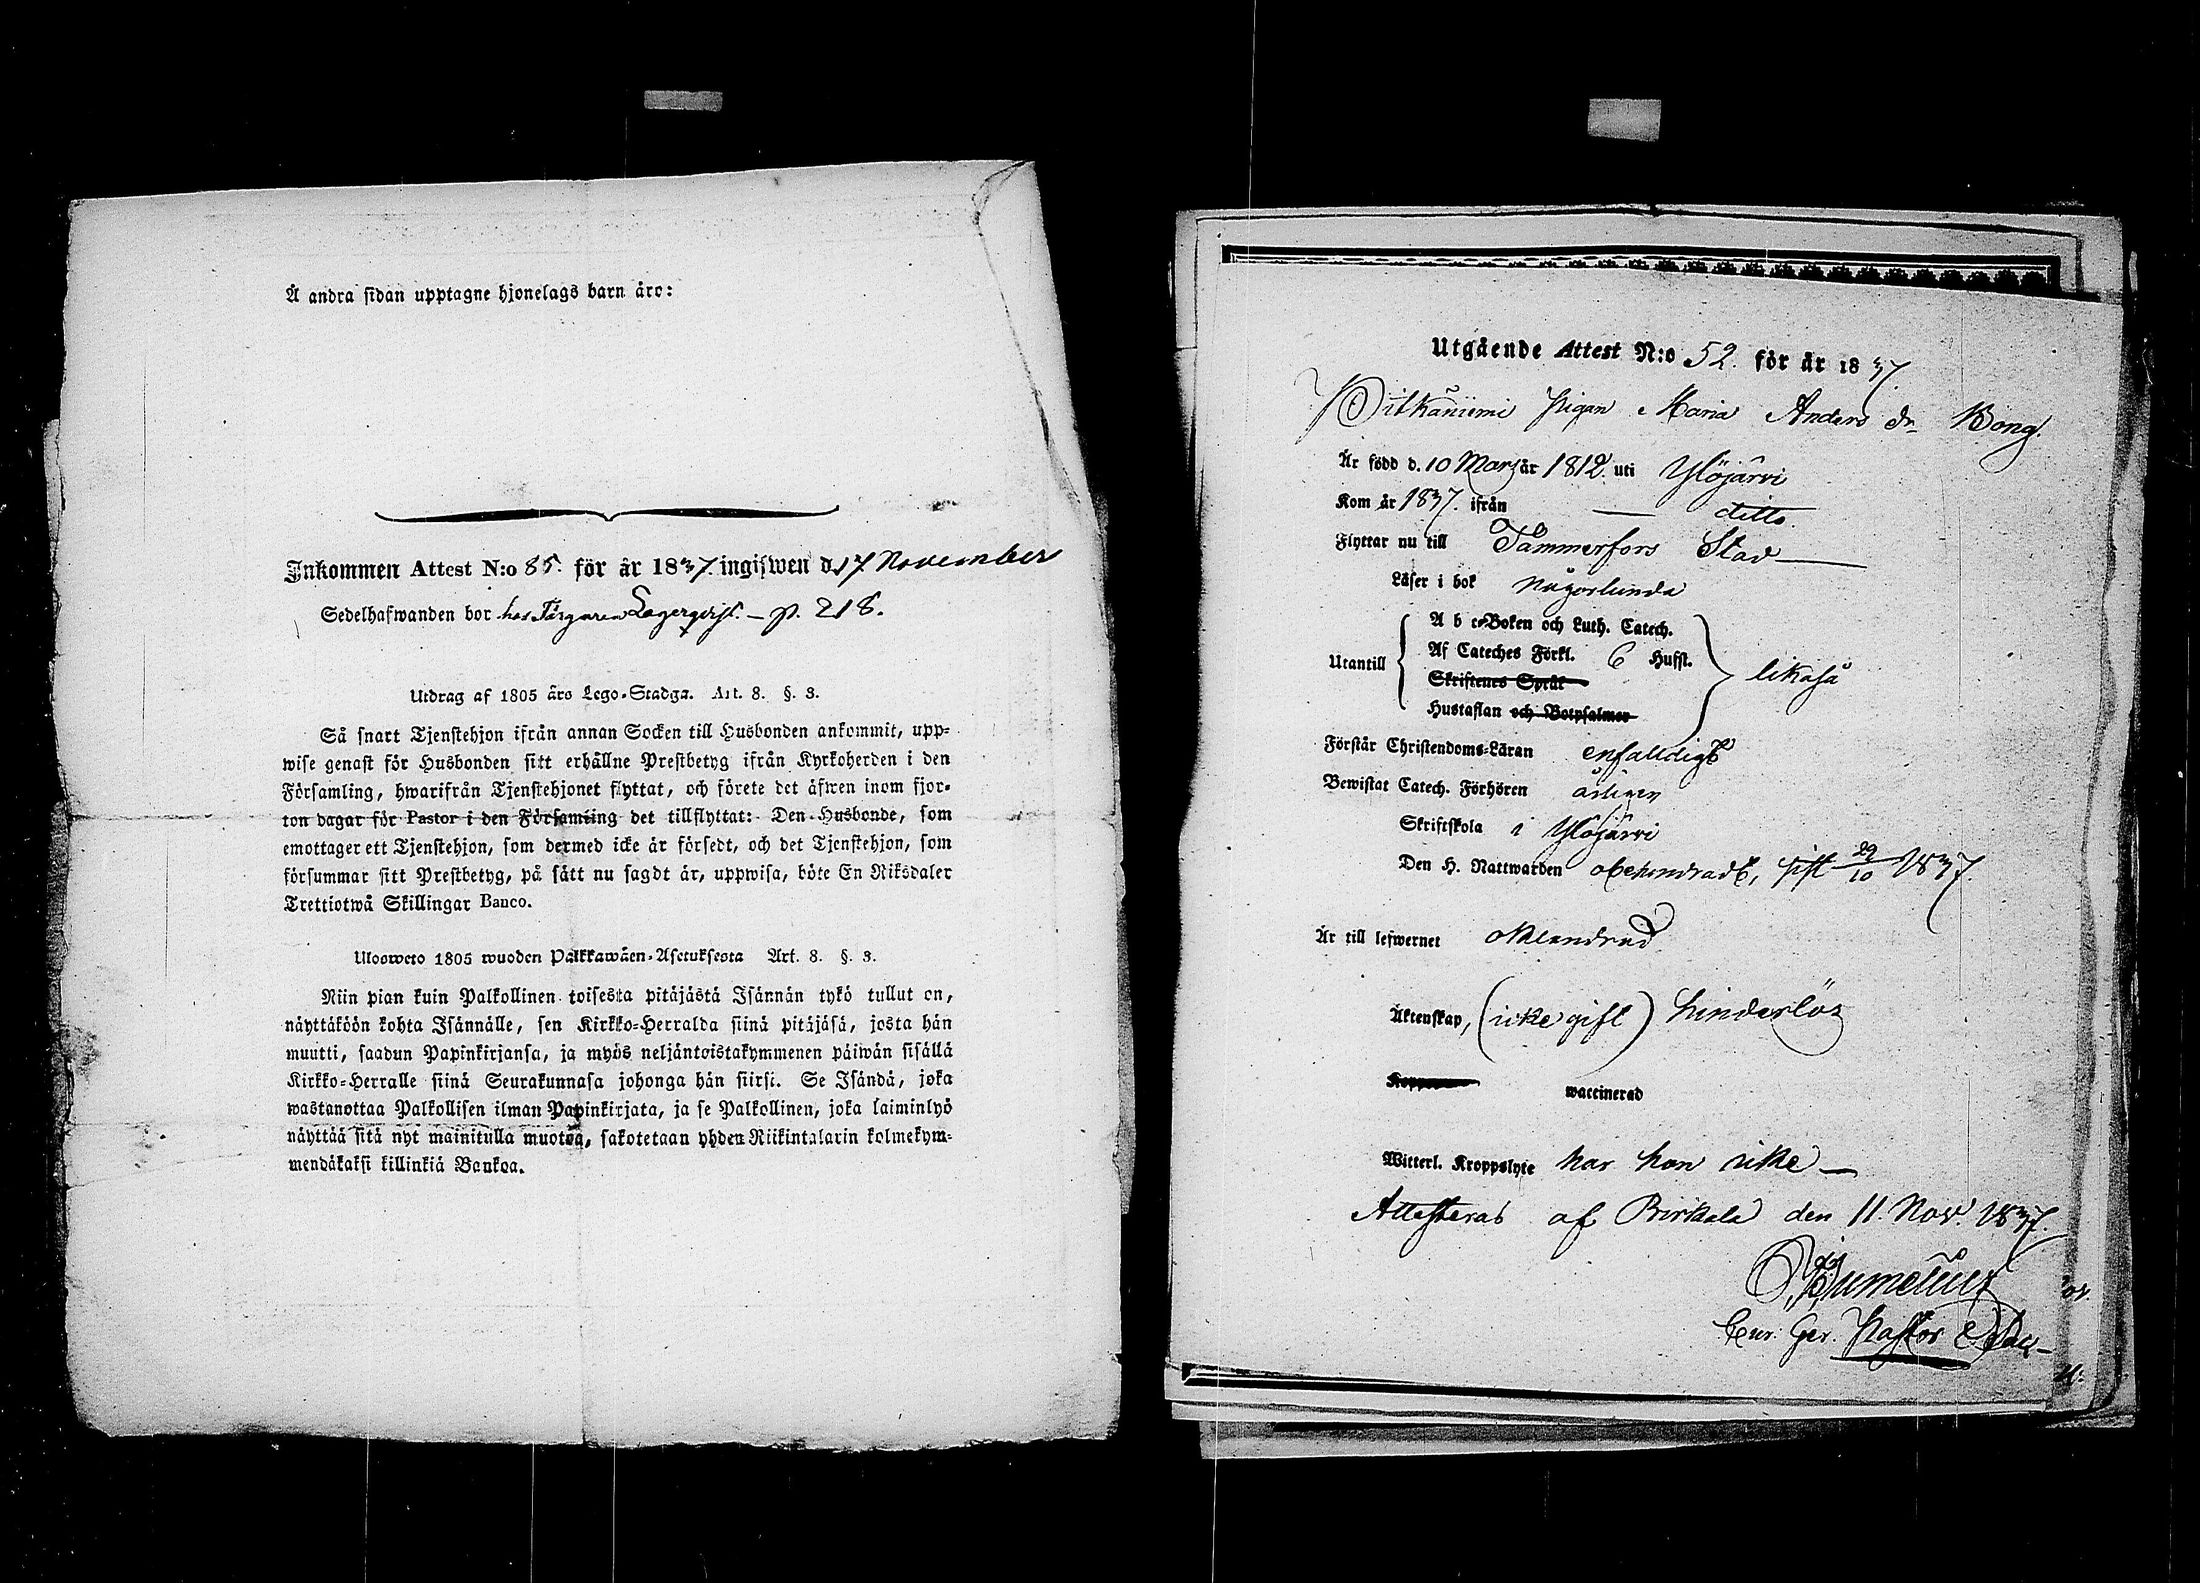 Å andra sidan upptagne hjonelags barn äro:
Inkommen Attest N:o 85. för år 1837. ingifwen d. 17 November
Sedelhafwanden bor hos Färgaren Lagerqvist. – p. 218.
Utdrag af 1805 års Lego-Stadga. Art. 8. §. 3.
Så snart Tjenstehjon ifrån annan Socken till Husbonden ankommit, upp-
wise genast för Husbonden sitt erhållne Prestbetyg ifrån Kyrkoherden i den
Församling, hwarifrån Tjenstehjonet flyttat, och förete det äfwen inom fjor-
ton dagar för Pastor i den Församling det tillflyttat: Den Husbonde, som
emottager ett Tjenstehjon, som dermed icke är försedt, och det Tjenstehjon, som
försummar sitt Prestbetyg, på sätt nu sagdt är, uppwisa, böte En Riksdaler
Trettiotwå Skillingar Banco.
Ulosweto 1805 wuoden Palkkawäen-Asetuksesta Art. 8. §. 3.
Niin pian kuin Palkollinen toisesta pitäjästä Isännän tykö tullut on,
näyttäköön kohta Isännälle, sen Kirkko-Herralda siinä pitäjäsä, josta hän
muutti, saadun Papinkirjansa, ja myös neljäntoistakymmenen päiwän sisällä
Kirkko-Herralle siinä Seurakunnasa johonga hän siirsi. Se Isändä, joka
wastanottaa Palkollisen ilman Papinkirjata, ja se Palkollinen, joka laiminlyö
näyttää sitä nyt mainitulla muotoa, sakotetaan yhden Riikintalarin kolmekym-
mendäkaksi killinkiä Bankoa.
Utgående Attest N:o 52. för år 1837.
Pitkäniemi Pigan Maria Anders dr Bong.
Är född d. 10 Mars år 1812. uti Ylöjärvi
Kom år 1837. ifrån — ditto.
Flyttar nu till Tammerfors Stad —
Läser i bok någorlunda
A b c-Boken och Luth. Catech.
Utantill Af Cateches Förkl. 6 Hufst. likaså
Skriftenes Språk
Hustaflan och Botpsalmer
Förstår Christendoms-Läran enfaldigt
Bewistat Catech. Förhören årligen
Skriftskola i Ylöjärvi
Den H. Nattwarden obehindradt, sist 29/10 1837.
Är till lefwernet oklandrad
Äktenskap, (icke gift) hinderlös
waccinerad
Witterl. Kroppslyte har hon icke —
Attesteras af Birkala den 11. Nov. 1837.
Pastor